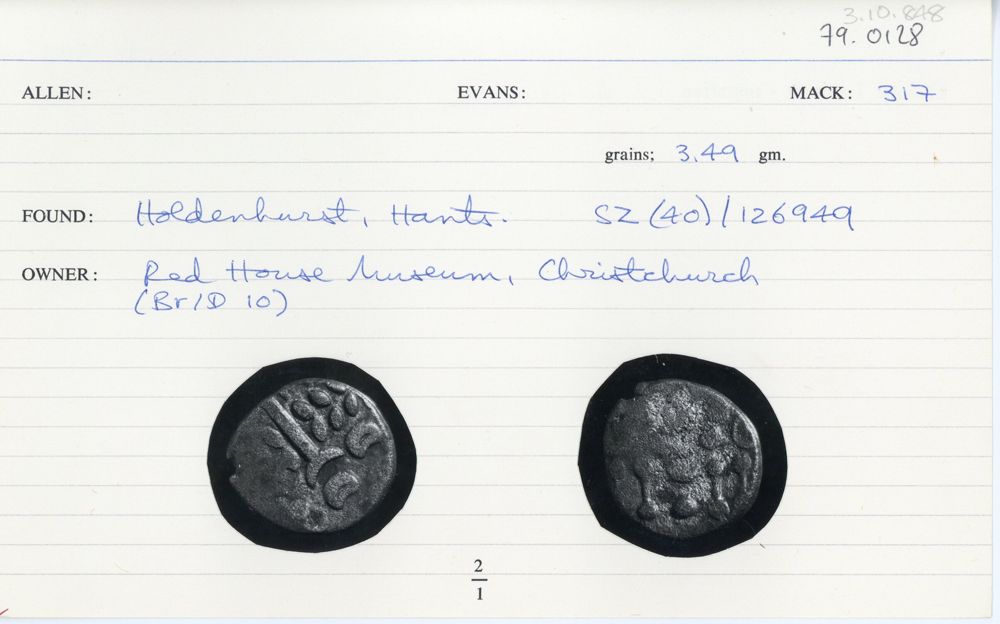 3.10.848
79.0128
ALLEN: EVANS: MACK: 317
grains; 3.49 gm.
FOUND: Holdenhurst, Hants. SZ (40) / 126949
OWNER: Red House Museum, Christchurch
(Br/D 10)
2
1